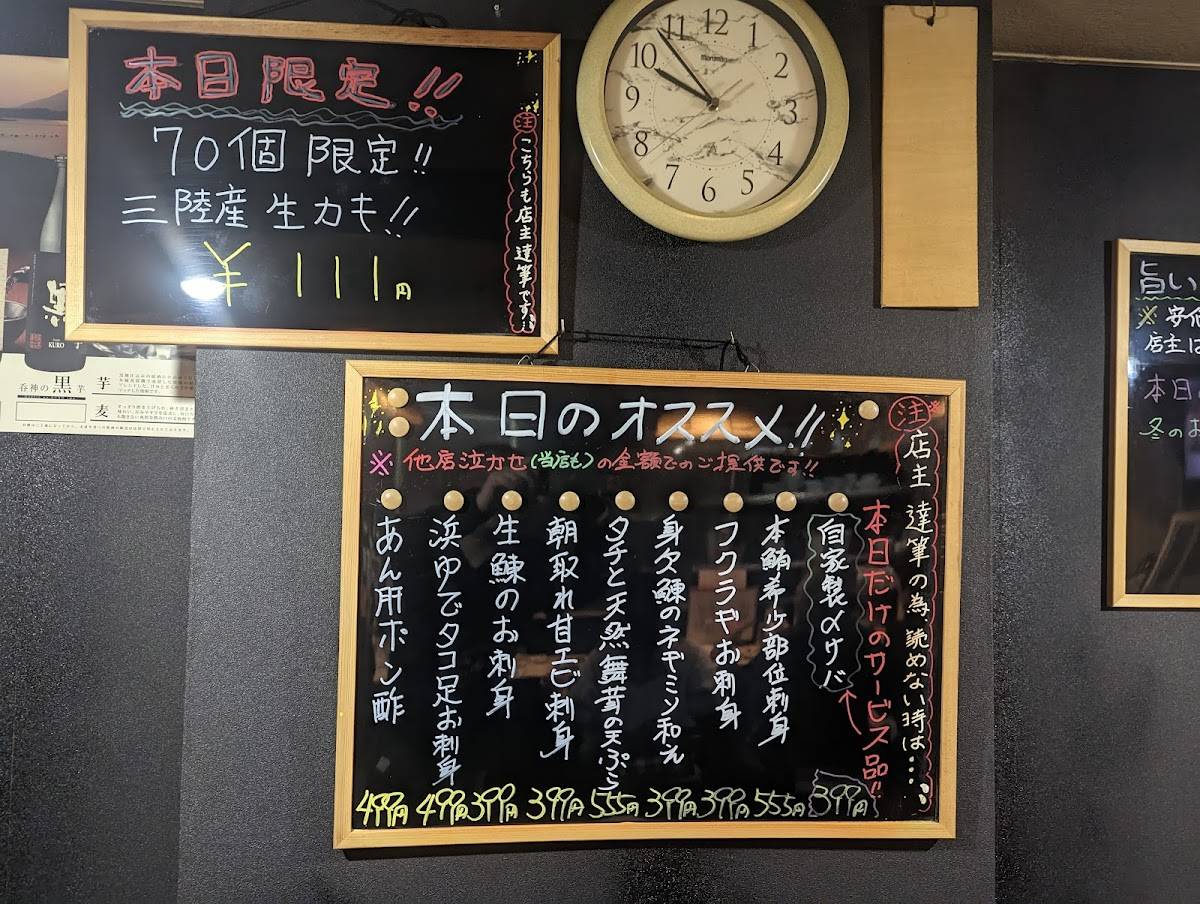 本日限定!!
70個限定!!
三陸産生カキ!!
¥111円
注 こちらも店主達筆です…
12
1
2
3
4
5
6
7
8
9
10
11
本日のオススメ!!
※他店泣かせ(当店も)の金額でのご提供です!!
注 店主達筆の為読めない時は…
本日だけのサービス品!!
自家製〆サバ 399円
本鮪希少部位刺身 555円
フクラギお刺身 399円
身欠鰊のネギミソ和え 399円
タチと天然舞茸の天ぷら 555円
朝取れ甘エビ刺身 399円
生鰊のお刺身 399円
浜ゆでタコ足お刺身 499円
あん肝ポン酢 499円
呑神の黒
芋
麦
KURO
旨い
※安価
店主は
本日
冬のお